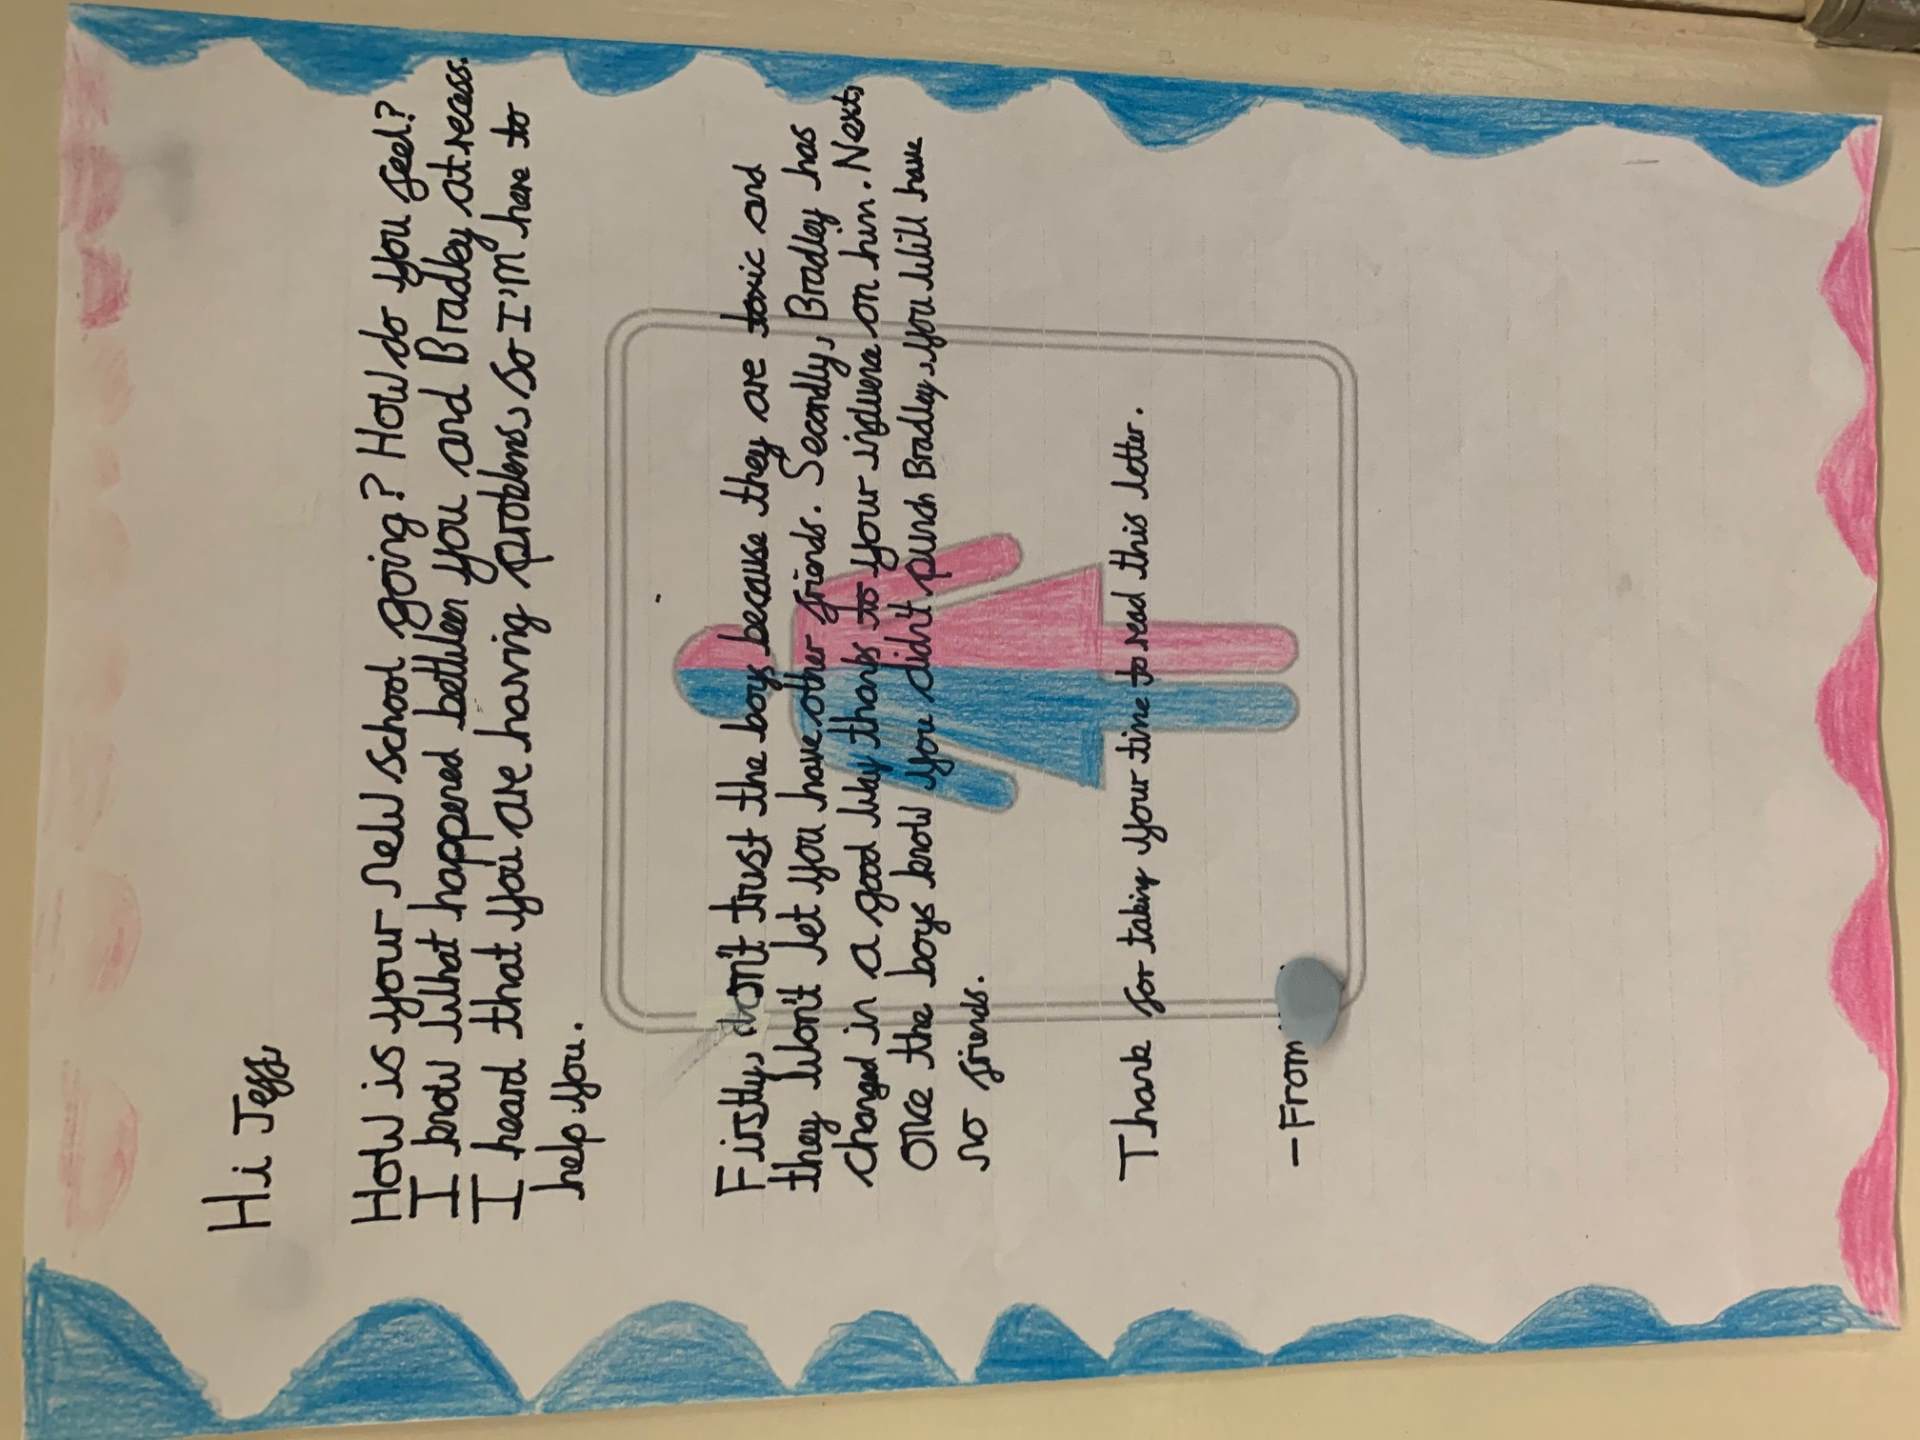 Hi Jeff
How is your new school going? How do you feel?
I know what happened between you and Bradley at recess.
I heard that you are having problems, so I'm here to
help you.
Firstly, don't trust the boys because they are toxic and
they won't let you have other friends. Secondly, Bradley has
changed in a good way thanks to your influence on him. Next,
once the boys know you didn't punch Bradley, you will have
no friends.
Thank for taking your time to read this letter.
-From